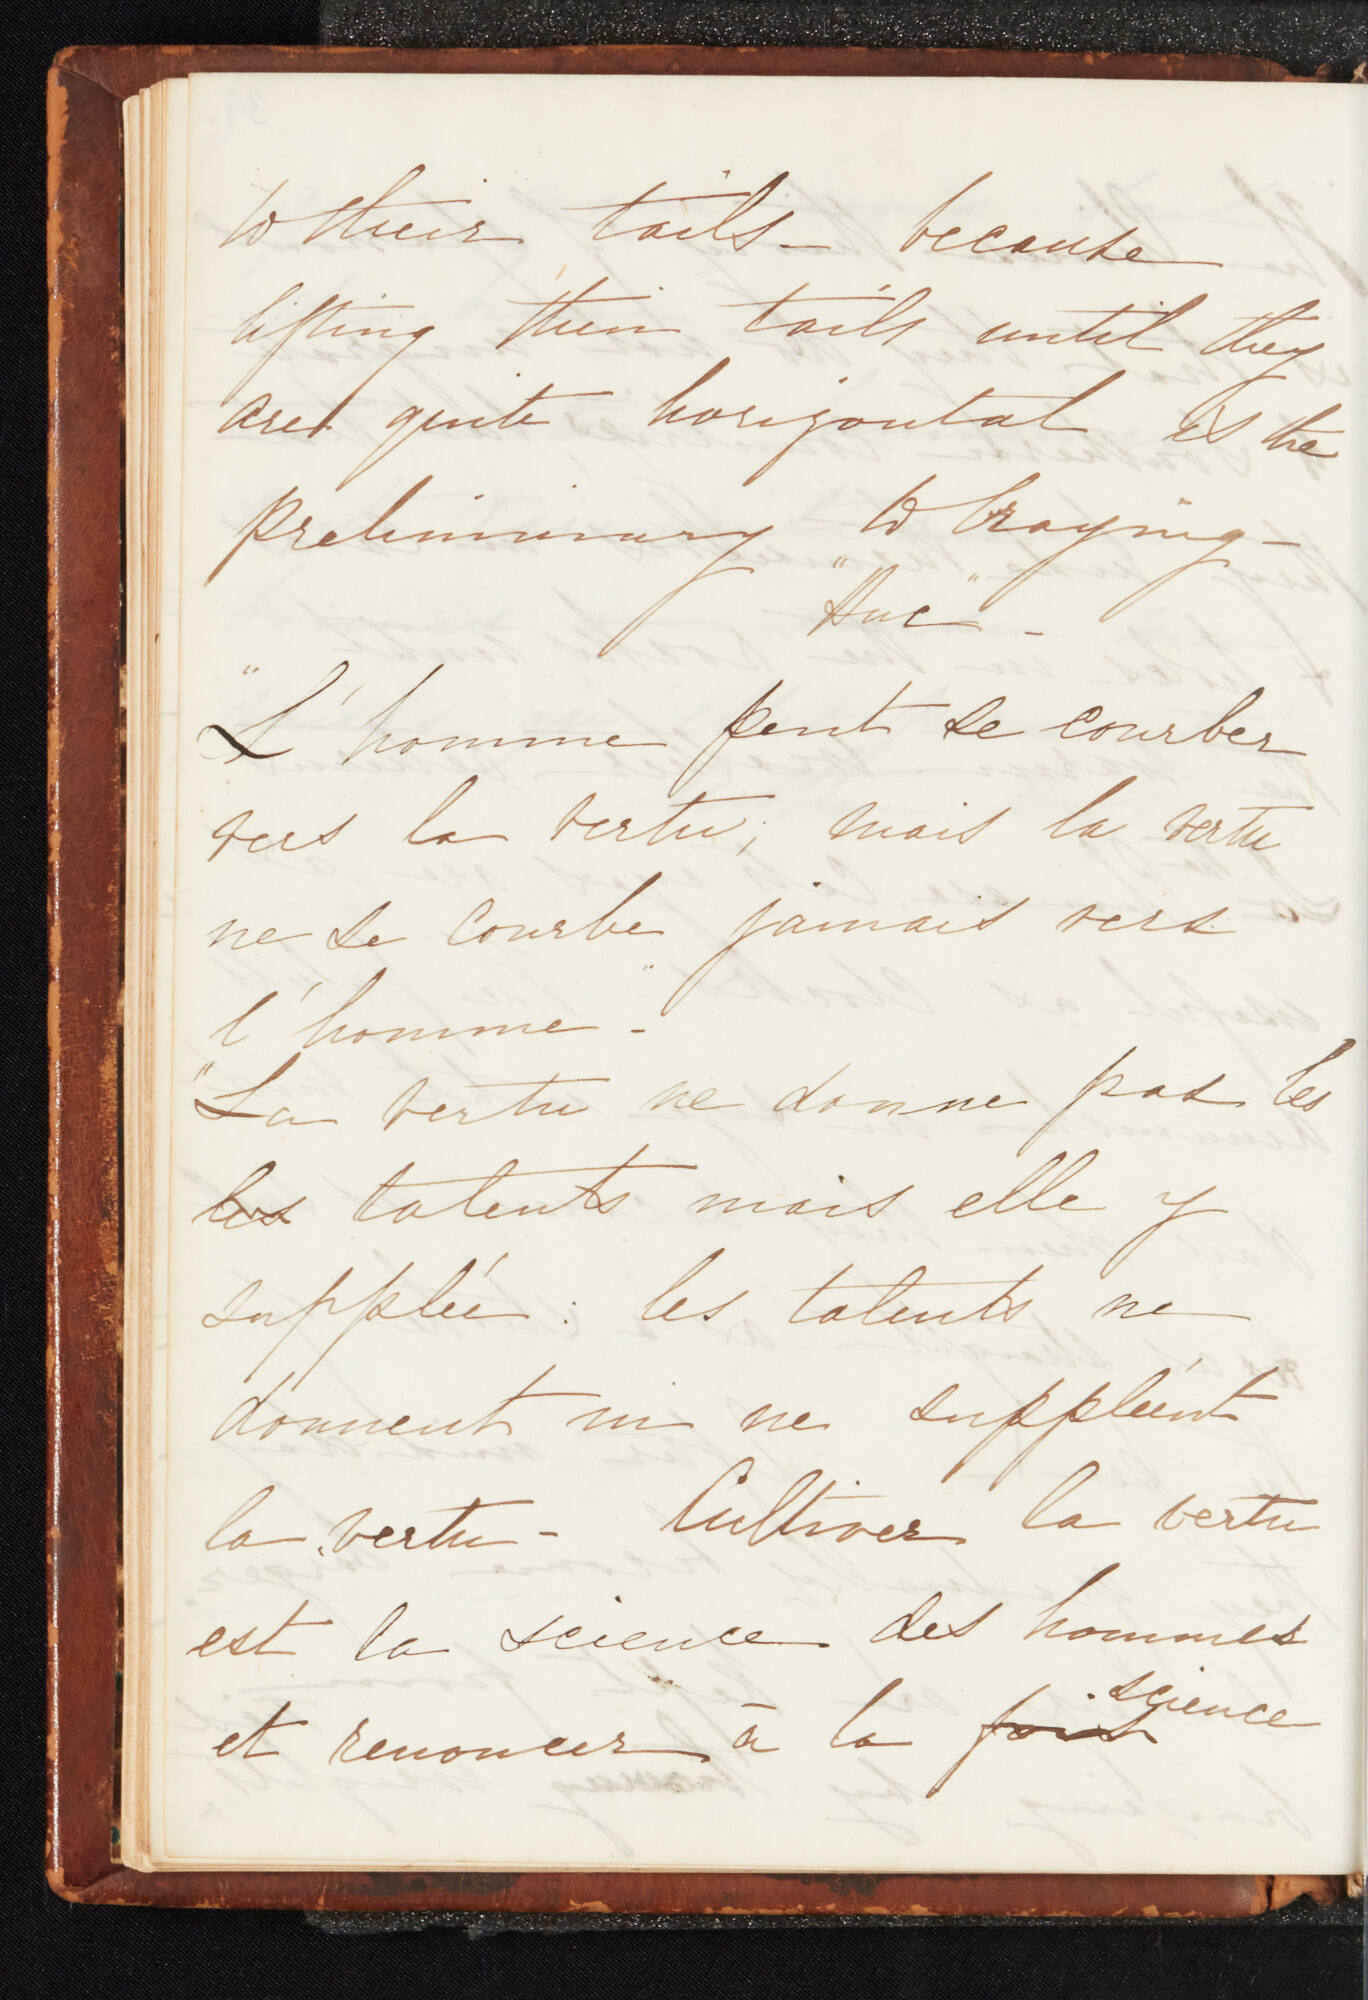 to their tails - because
lifting their tails until they
are quite horizontal is the
preliminary to braying -
"Huc" -
"L'homme peut se courber
vers la vertu; mais la vertu
ne se courbe jamais vers
l'homme" -
"La vertu ne donne pas les
les talents mais elle y
supplée : les talents ne
donnent ni ne suppléent
la vertu - Cultiver la vertu
est la science des hommes
et renoncer à la fois science